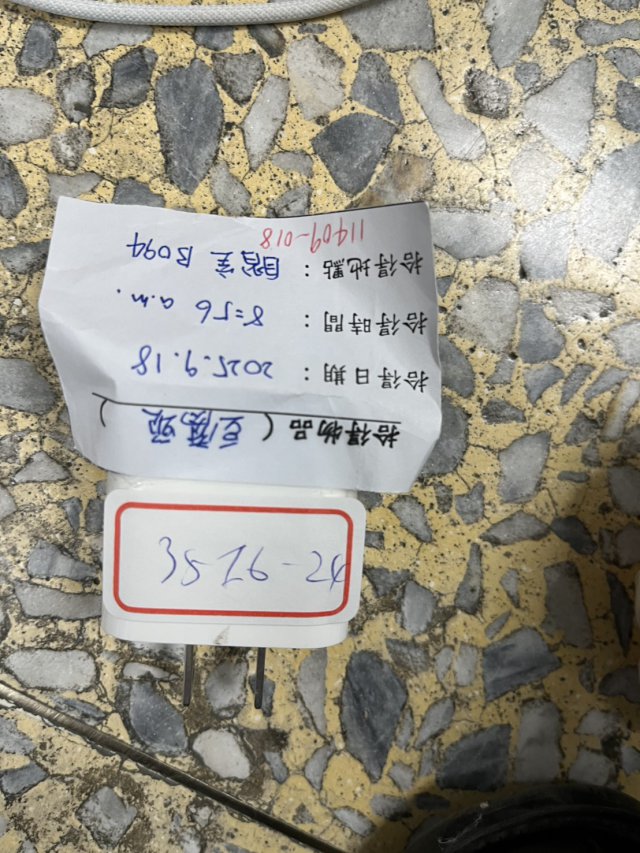 拾得物品（豆腐頭）
拾得日期：2025.9.18
拾得時間：8:56 a.m.
拾得地點：自習室 B094
11409-018
3526-24